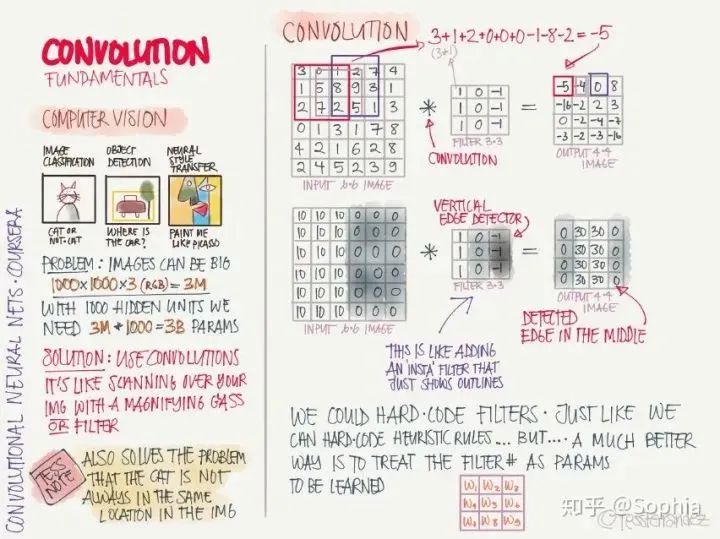 CONVOLUTION
FUNDAMENTALS
COMPUTER VISION
IMAGE
CLASSIFICATION
CAT OR
NOT-CAT
OBJECT
DETECTION
WHERE IS
THE CAR?
NEURAL
STYLE
TRANSFER
PAINT ME
LIKE PICASSO
PROBLEM: IMAGES CAN BE BIG
1000×1000×3 (RGB) = 3M
WITH 1000 HIDDEN UNITS WE
NEED 3M*1000=3B PARAMS
SOLUTION: USE CONVOLUTIONS
IT'S LIKE SCANNING OVER YOUR
IMG WITH A MAGNIFYING GASS
OR FILTER
TESS
NOTE
ALSO SOLVES THE PROBLEM
THAT THE CAT IS NOT
ALWAYS IN THE SAME
LOCATION IN THE IMG
CONVOLUTIONAL NEURAL NETS·COURSERA
CONVOLUTION
3+1+2+0+0+0-1-8-2=-5
(3*1)
3 0 1 2 7 4
1 5 8 9 3 1
2 7 2 5 1 3
0 1 3 1 7 8
4 2 1 6 2 8
2 4 5 2 3 9
INPUT 6·6 IMAGE
*
CONVOLUTION
1 0 -1
1 0 -1
1 0 -1
FILTER 3×3
=
-5 -4 0 8
-16 -2 2 3
0 -2 -4 -7
-3 -2 -3 -16
OUTPUT 4·4
IMAGE
10 10 10 0 0 0
10 10 10 0 0 0
10 10 10 0 0 0
10 10 10 0 0 0
10 10 10 0 0 0
10 10 10 0 0 0
INPUT 6·6 IMAGE
*
VERTICAL
EDGE DETECTOR
1 0 -1
1 0 -1
1 0 -1
FILTER 3×3
=
0 30 30 0
0 30 30 0
0 30 30 0
0 30 30 0
OUTPUT 4·4
IMAGE
THIS IS LIKE ADDING
AN 'INSTA' FILTER THAT
JUST SHOWS OUTLINES
DETECTED
EDGE IN THE MIDDLE
WE COULD HARD·CODE FILTERS· JUST LIKE WE
CAN HARD·CODE HEURISTIC RULES... BUT.... A MUCH BETTER
WAY IS TO TREAT THE FILTER# AS PARAMS
TO BE LEARNED
W1 W2 W3
W4 W5 W6
W7 W8 W9
知乎 @Sophia
@TessFerrandez